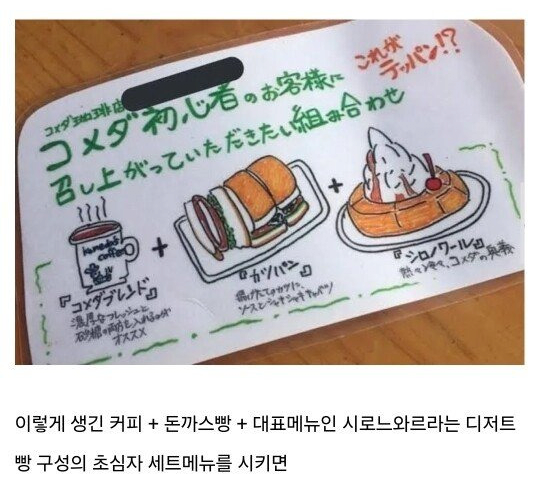 コメダ珈琲店
コメダ初心者のお客様に
召し上がっていただきたい組み合わせ
これが
テッパン!?
Komeda's
coffee
+
+
『コメダブレンド』
濃厚なフレッシュと
砂糖の両方を入れるのが
オススメ
『カツパン』
揚げたてのカツに、
ソースとシャキシャキキャベツ
『シロノワール』
コメダの奥義
이렇게 생긴 커피 + 돈까스빵 + 대표메뉴인 시로느와르라는 디저트
빵 구성의 초심자 세트메뉴를 시키면